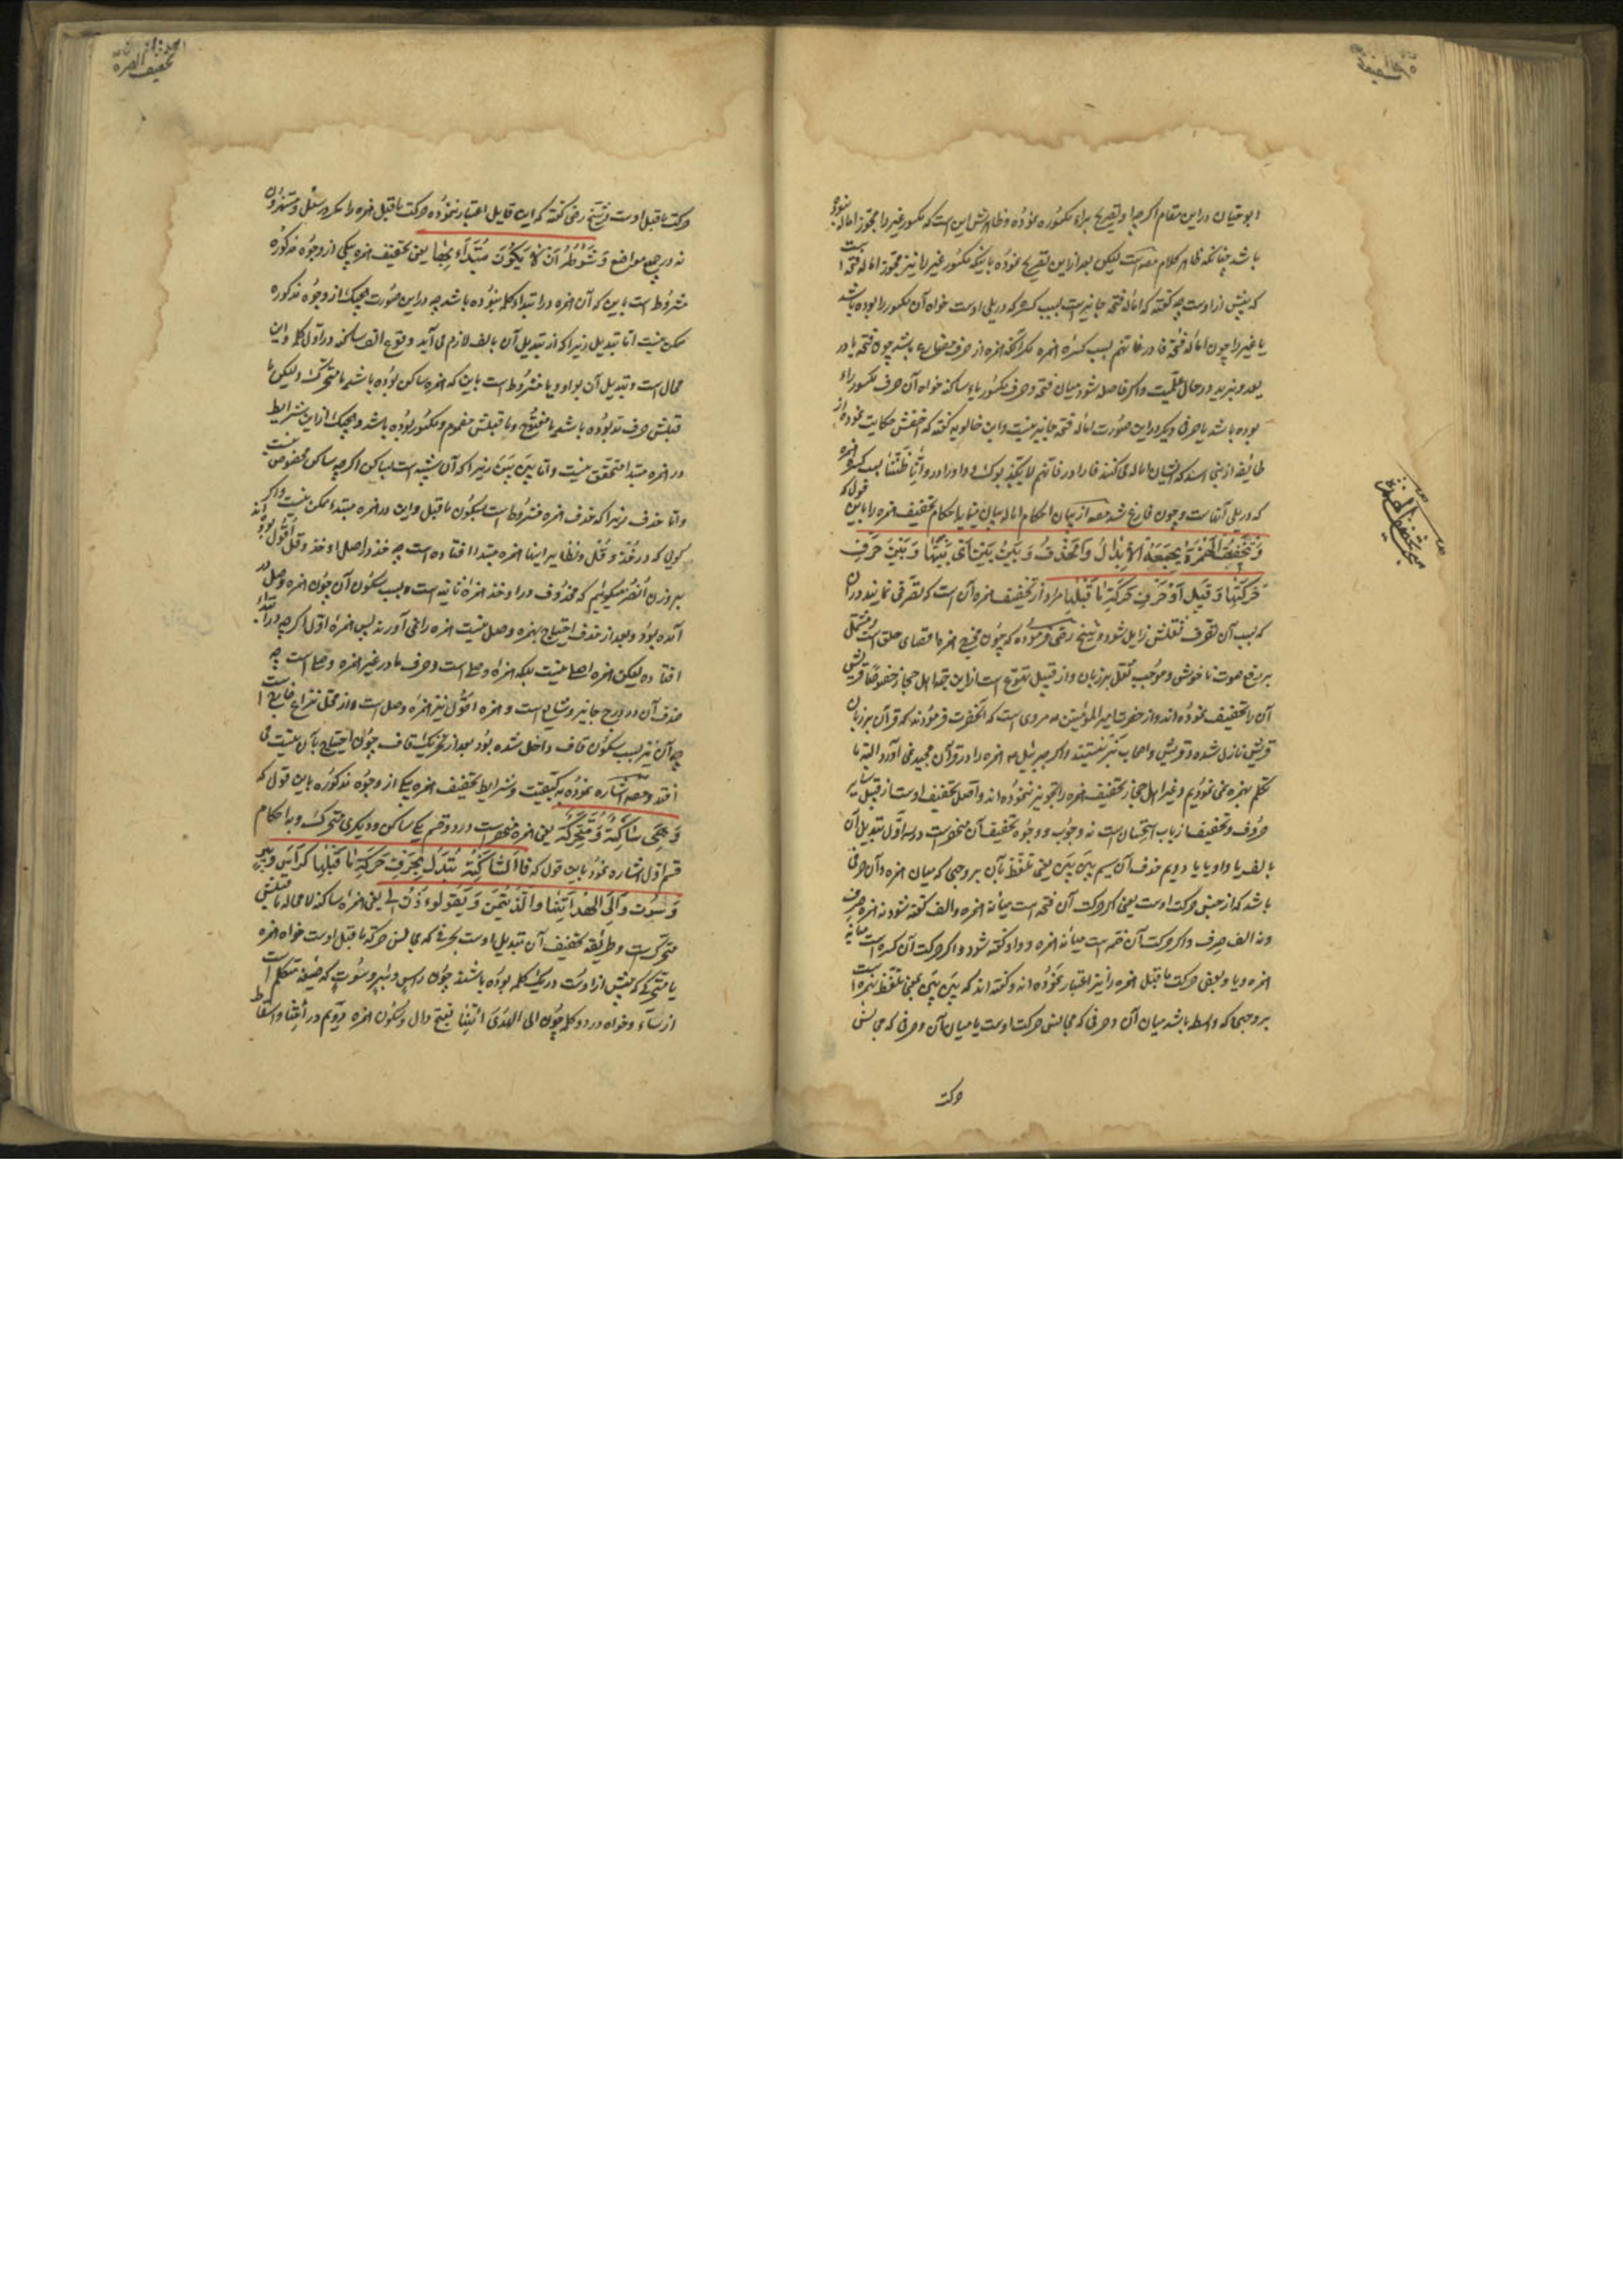 ابوحیان در این مقام اگرچه تصریح براء مکسوره نموده و ظاهرش این است که مکسور غیر را مجوز اماله نبوده
باشد چنانکه ظاهر کلام مصه است لیکن بعد از این تصریح نموده باینکه مکسور غیر را نیز مجوز اماله فتحه است
که پیش از اوست چه گفته که اماله فتحه جایز است بسبب کسره که در پلی اوست خواه آن مکسور را بوده باشد
یا غیر را چون اماله فتحه
بوده باشد یا حرفی دیگر در این صورت اماله فتحه جایز نیست و ابن خالویه گفته که اخفش حکایت نموده از
طایفه از بنی اسد که ایشان اماله می کنند
که در پلی آنهاست و چون فارغ شد مصه از بیان احکام اماله بیان مینماید احکام تخفیف همزه را باین قول که
وَتَخْفِيفُ الْهَمْزَةِ يَجْمَعُهُ الْإِبْدَالُ وَالْحَذْفُ وَبَيْنَ بَيْنَ أَيْ بَيْنَهَا وَبَيْنَ حَرْفِ
حَرَكَتِهَا وَقِيلَ أَوْ حَرْفِ حَرَكَةِ مَا قَبْلَهَا مراد از تخفیف همزه آن است که تصرفی نمایند در آن
که بسبب آن تصرف ثقلتش زایل شود و شیخ رضی فرموده که چون مخرج همزه اقصای حلق است و مشتمل
بر رفع صوت ناخوش و موجب ثقل بر زبان و از قبیل تهوع است از این جهة اهل حجاز خصوصا قریش
آن را تخفیف نموده‌اند و از حضرت امیر المؤمنین مروی است که آنحضرت فرمودند که قرآن بزبان
قریش نازل شده و قریش و اصحاب نبر نیستند و اگر جبرئیل همزه را در قرآن مجید نمی آورد البته ما
تکلم بهمزه نمی نمودیم و غیر اهل حجاز تخفیف همزه را تجویز ننموده‌اند و اصل تخفیف اوست از قبیل سایر
حروف و تخفیف از باب استحسان است نه وجوب و وجوه تخفیف آن منحصر است در سه اول تبدیل آن
بالف یا واو یا یا دویم حذف آن سیم بین بین یعنی تلفظ بآن بر وجهی که میان همزه و آن حرفی
باشد که از جنس حرکت اوست یعنی اگر حرکت آن فتحه است میانه همزه و الف گفته شود نه همزه صرف
و نه الف صرف و اگر حرکت آن ضمه است میانه همزه و واو گفته شود و اگر حرکت آن کسره است میانه
همزه و یا و بعضی حرکت ما قبل همزه را نیز اعتبار نموده‌اند و گفته‌اند که بین بین یعنی تلفظ بهمزه است
بر وجهی که واسطه باشد میان آن و حرفی که مجانس حرکت اوست یا میان آن و حرفی که مجانس
حرکت
حرکت ما قبل اوست و شیخ رضی گفته که این قایل اعتبار ننموده حرکت ما قبل همزه را مگر در سئل و مستهزؤن
نه در جمیع مواضع وَشَرْطُهُ أَنْ لَا يَكُونَ مُبْتَدَأً بِهَا یعنی تخفیف همزه بیکی از وجوه مذکوره
مشروط است باین که آن همزه در ابتداء کلمه نبوده باشد چه در این صورت هیچیک از وجوه مذکوره
ممکن نیست اما تبدیل زیرا که از تبدیل آن بالف لازم می آید وقوع الف ساکنه در اول کلمه و این
محال است و تبدیل آن بواو و یا مشروط است باین که همزه ساکن بوده باشد یا متحرک و لیکن ما
قبلش حرف مد بوده باشد یا مفتوح و ما قبلش مضموم و مکسور بوده باشد و هیچیک از این شرایط
در همزه مبتدا متحقق نیست و اما بین بین زیرا که آن شبیه است بساکن اگرچه ساکن مخصوص نیست
و اما حذف زیرا که حذف همزه مشروط است بسکون ما قبل و این در همزه مبتدا ممکن نیست و اگر
گوئی که در خذ و قل و نظایر اینها همزه مبتدا افتاده است چه خذ در اصل اوخذ و قل اقول بوده‌اند
بر وزن انصر میگوئیم که محذوف در اوخذ همزه ثانیه است و بسبب سکون آن چون همزه وصل در
آمده بود و بعد از حذف احتیاج بهمزه وصل نیست همزه را نمی آورند پس همزه اول اگرچه در ابتداء
افتاده لیکن همزه اصلی نیست بلکه همزه وصلی است و حرف ما در غیر همزه وصلی است چه
حذف آن در درج جایز و شایع است و همزه اقول نیز همزه وصل است و از محل نزاع خارج است
چه آن نیز بسبب سکون قاف داخل شده بود بعد از تحریک قاف چون احتیاج بآن نیست می
افتد و مصه اشاره نموده بکیفیت و شرایط تخفیف همزه بیکی از وجوه مذکوره باین قول که
وَهِيَ سَاكِنَةٌ وَمُتَحَرِّكَةٌ یعنی همزه منحصر است در دو قسم یکی ساکن و دیگری متحرک و به احکام
قسم اول اشاره نمود باین قول که فَالسَّاكِنَةُ تُبْدَلُ بِحَرْفِ حَرَكَةِ مَا قَبْلَهَا كَرَاسٍ وَبِيرٍ
وَسُوتُ وَإِلَى الْهُدَاتِنَا وَالَّذِيتُمِنَ وَيَقُولُوذَنْ لِي یعنی همزه ساکنه لامحاله ما قبلش
متحرک است و طریقه تخفیف آن تبدیل اوست بحرفی که مجانس حرکة ما قبل اوست خواه همزه
با متحرکی که پیش از اوست در یک کلمه بوده باشند چون راس و بیر و سوت که صیغه متکلم است
از ساء و خواه در دو کلمه چون الی الهدی ائتنا بفتح دال و سکون همزه دویم در ائتنا و اسقاط